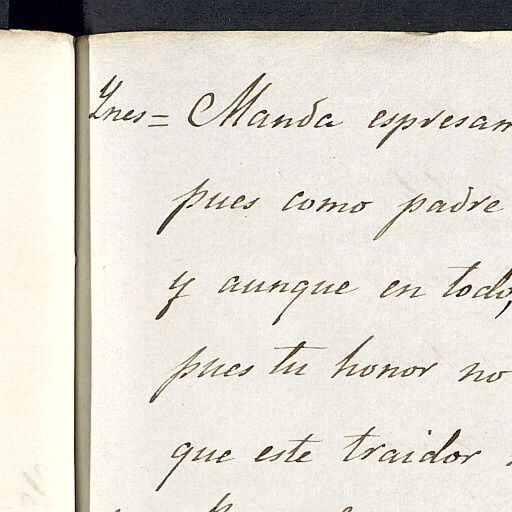 Ynes = Manda espresam
pues como padre
y aunque en todo,
pues tu honor no
que este traidor